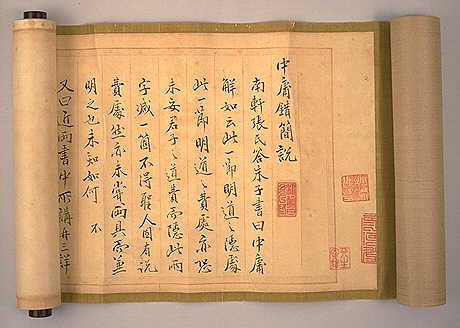 中庸錯簡說
南軒張氏答朱子書曰中庸
解如云此一節明道之隱處
此一節明道之費處亦恐
未安君子之道費而隱此兩
字減一箇不得聖人固有說
費處然亦未嘗兩具而並
明之也未知如何 不
又曰近兩書中所講再三詳